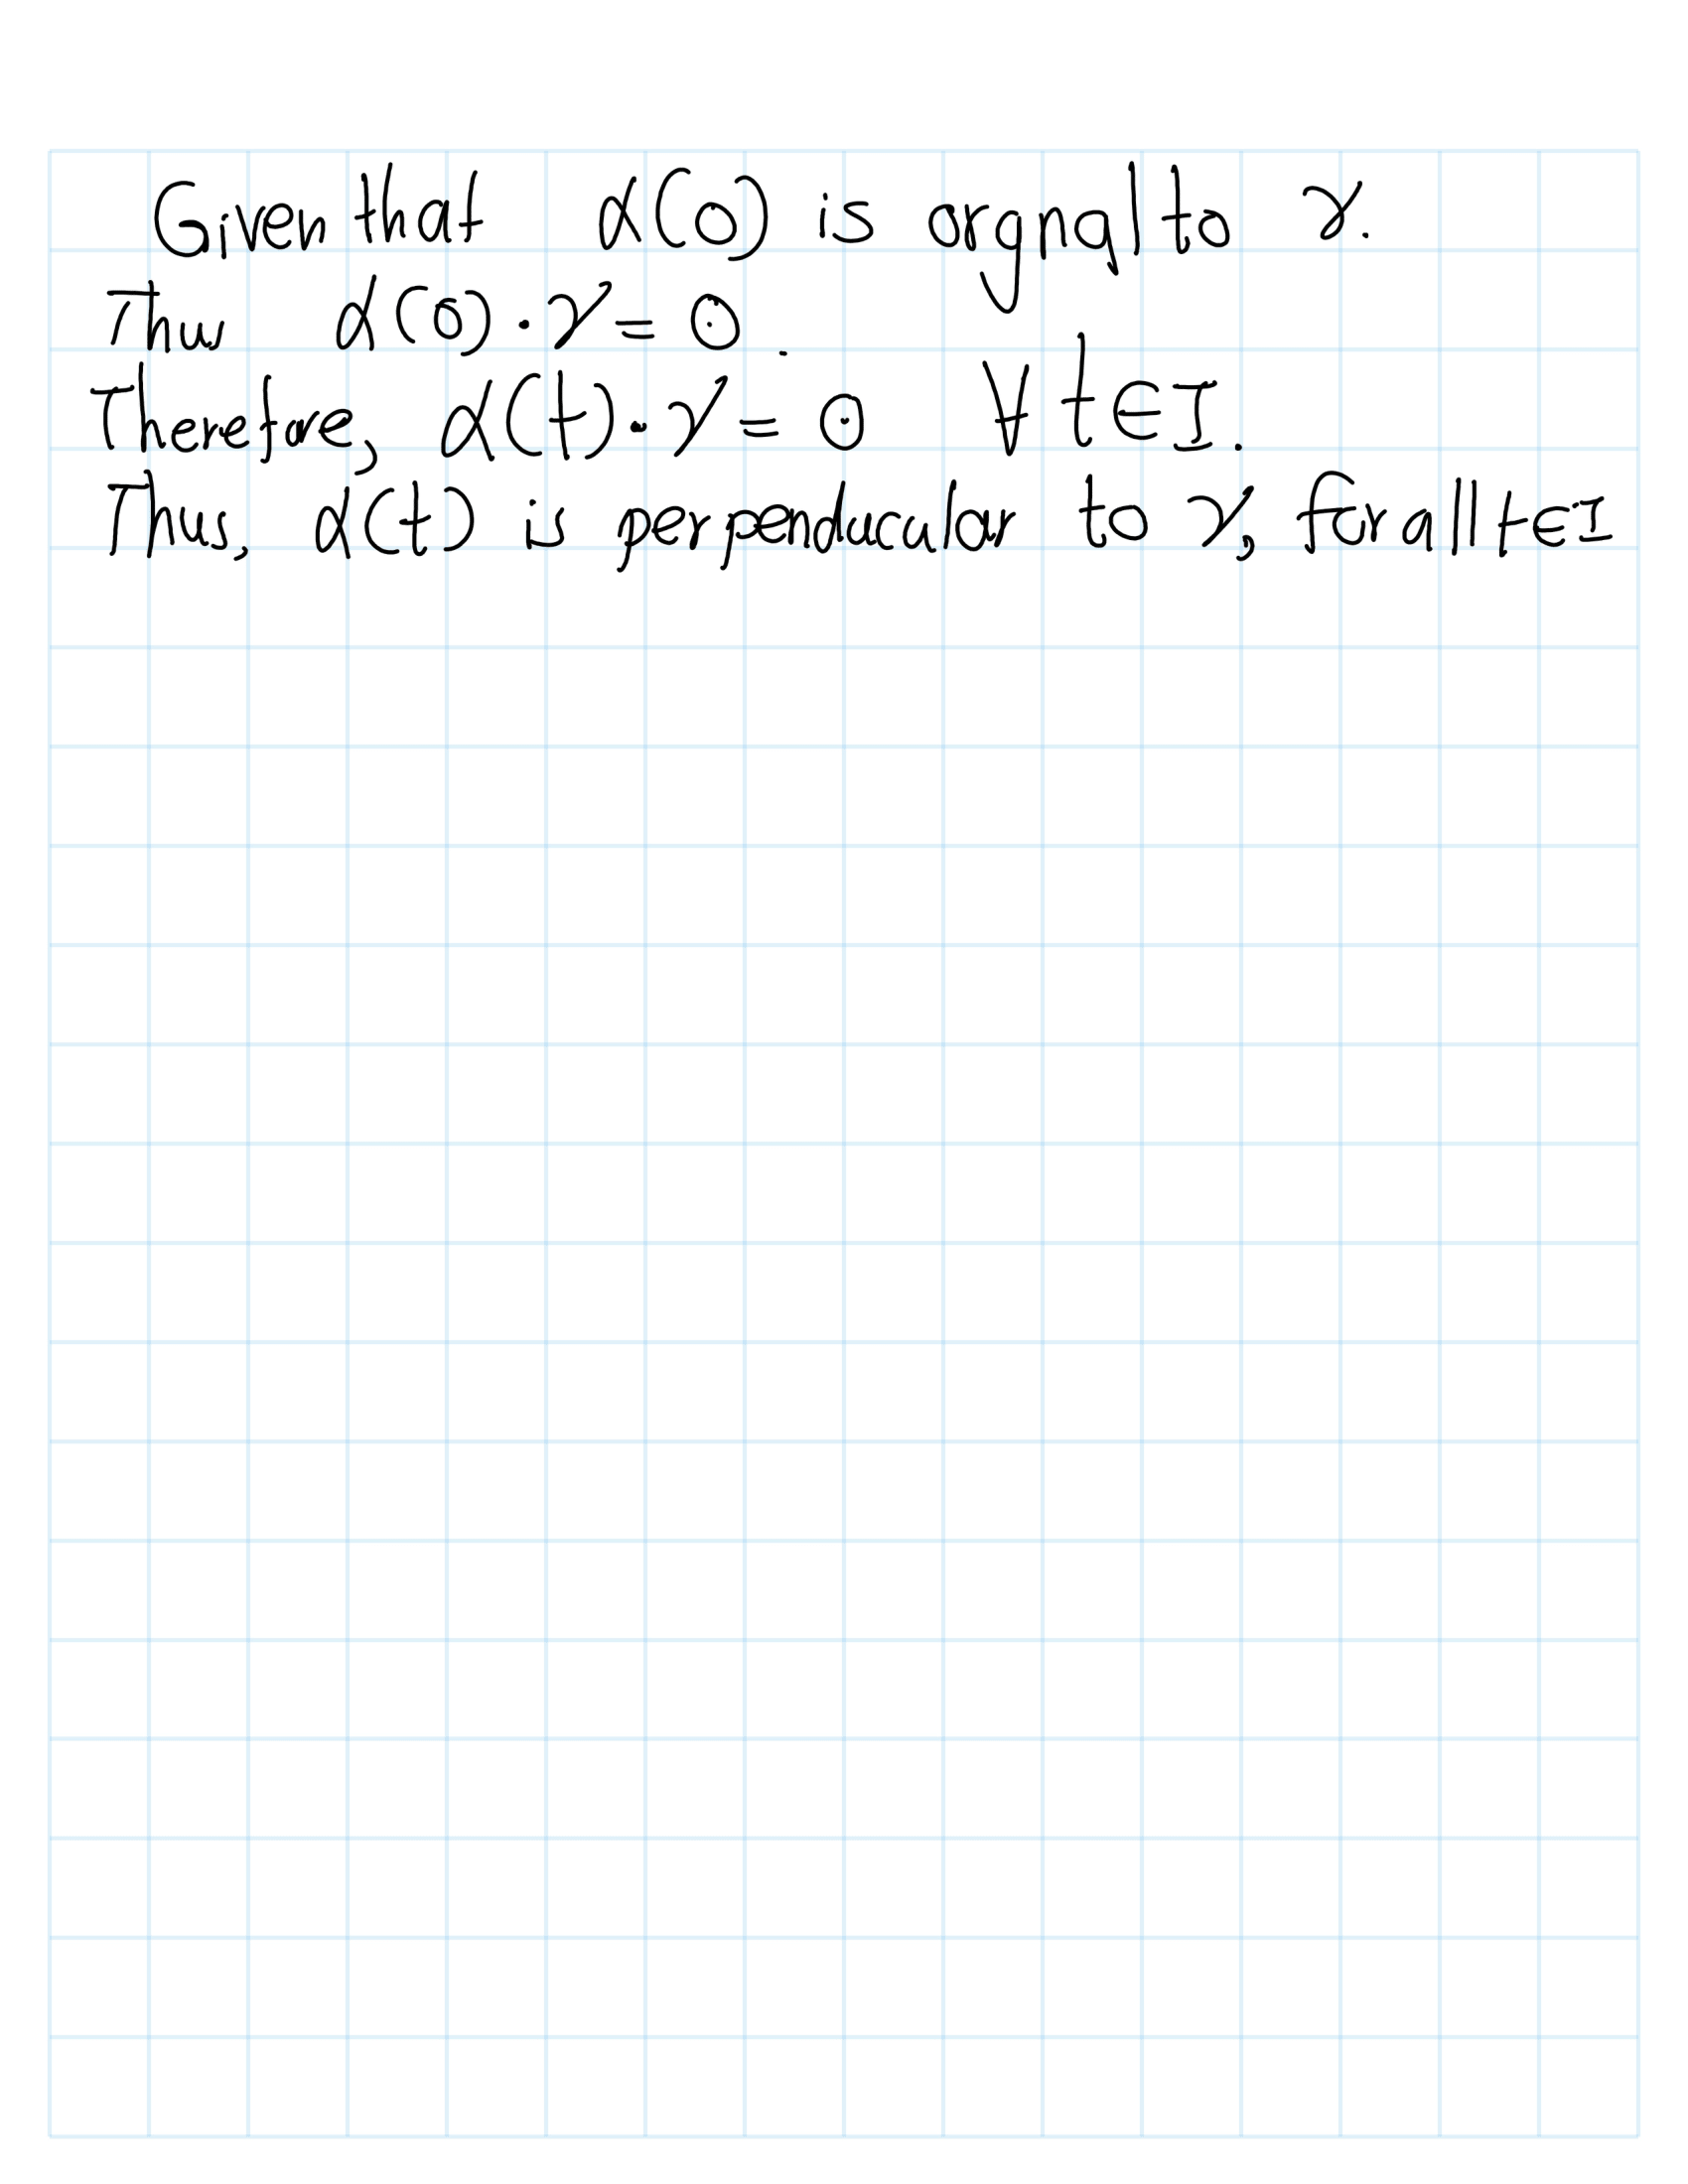 Given that α(0) is orgnal to v.
Thu α(0) · v = 0.
Therefore, α(t) · v = 0 ∀ t ∈ I.
Thus, α(t) is perpendacular to v, for all t ∈ I